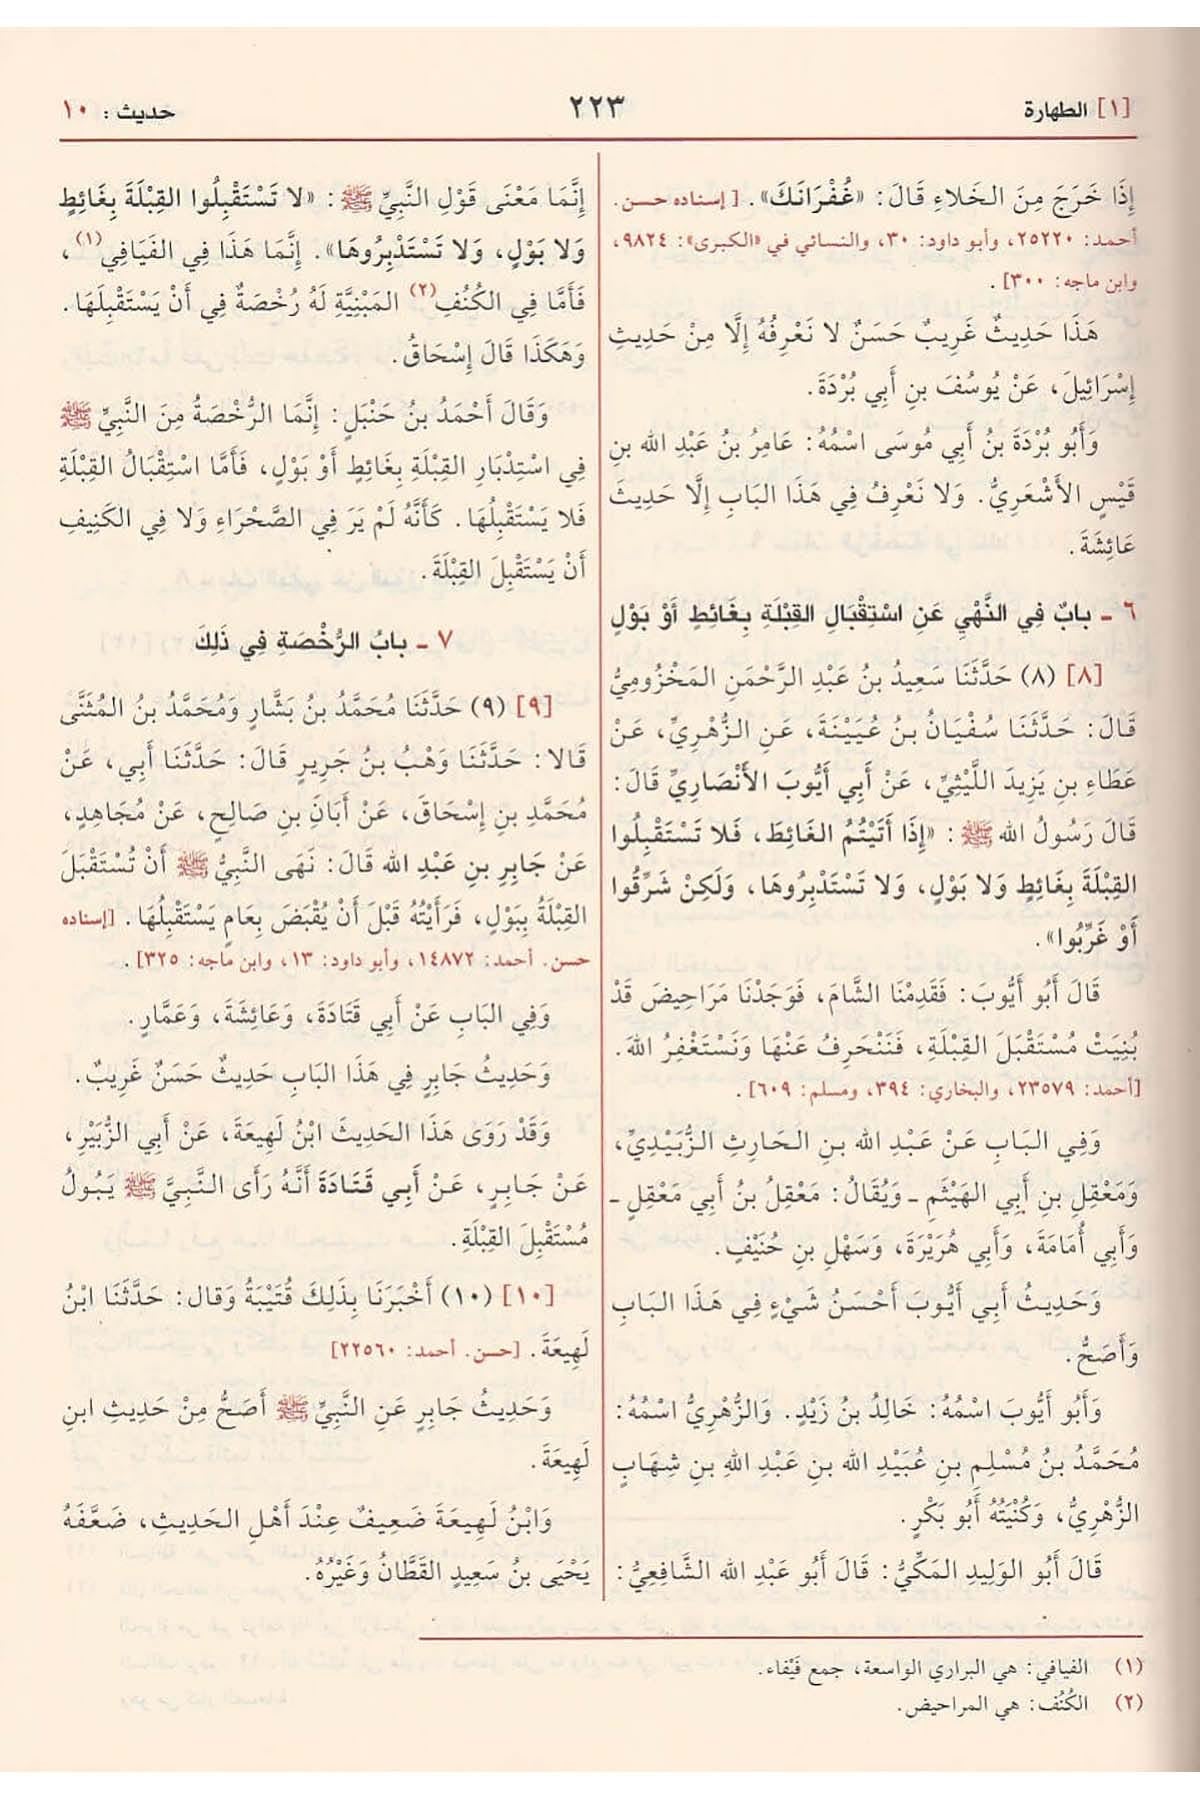 [١] الطهارة
٢٢٣
حديث : ١٠
إِذَا خَرَجَ مِنَ الخَلاءِ قَالَ: «غُفْرَانَكَ». [إسناده حسن.
أحمد: ٢٥٢٢٠، وأبو داود: ٣٠، والنسائي في «الكبرى»: ٩٨٢٤،
وابن ماجه: ٣٠٠].
هَذَا حَدِيثٌ غَرِيبٌ حَسَنٌ لا نَعْرِفُهُ إِلَّا مِنْ حَدِيثِ
إِسْرَائِيلَ، عَنْ يُوسُفَ بنِ أَبِي بُرْدَةَ.
وَأَبُو بُرْدَةَ بنُ أَبِي مُوسَى اسْمُهُ: عَامِرُ بنُ عَبْدِ الله بنِ
قَيْسٍ الأَشْعَرِيُّ. وَلا نَعْرِفُ فِي هَذَا البَابِ إِلَّا حَدِيثَ
عَائِشَةَ.
٦ - بابٌ فِي النَّهْيِ عَنِ اسْتِقْبَالِ القِبْلَةِ بِغَائِطٍ أَوْ بَوْلٍ
[٨] (٨) حَدَّثَنَا سَعِيدُ بنُ عَبْدِ الرَّحْمَنِ المَخْزُومِيُّ
قَالَ: حَدَّثَنَا سُفْيَانُ بنُ عُيَيْنَةَ، عَنِ الزُّهْرِيِّ، عَنْ
عَطَاءِ بنِ يَزِيدَ اللَّيْثِيِّ، عَنْ أَبِي أَيُّوبَ الأَنْصَارِيِّ قَالَ:
قَالَ رَسُولُ الله ﷺ: «إِذَا أَتَيْتُمُ الغَائِطَ، فَلا تَسْتَقْبِلُوا
القِبْلَةَ بِغَائِطٍ وَلا بَوْلٍ، وَلا تَسْتَدْبِرُوهَا، وَلَكِنْ شَرِّقُوا
أَوْ غَرِّبُوا».
قَالَ أَبُو أَيُّوبَ: فَقَدِمْنَا الشَّامَ، فَوَجَدْنَا مَرَاحِيضَ قَدْ
بُنِيَتْ مُسْتَقْبَلَ القِبْلَةِ، فَنَنْحَرِفُ عَنْهَا وَنَسْتَغْفِرُ اللهَ.
[أحمد: ٢٣٥٧٩، والبخاري: ٣٩٤، ومسلم: ٦٠٩].
وَفِي البَابِ عَنْ عَبْدِ الله بنِ الحَارِثِ الزُّبَيْدِيِّ،
وَمَعْقِلِ بنِ أَبِي الهَيْثَمِ - وَيُقَالُ: مَعْقِلُ بنُ أَبِي مَعْقِلٍ -
وَأَبِي أُمَامَةَ، وَأَبِي هُرَيْرَةَ، وَسَهْلِ بنِ حُنَيْفٍ.
وَحَدِيثُ أَبِي أَيُّوبَ أَحْسَنُ شَيْءٍ فِي هَذَا البَابِ
وَأَصَحُّ.
وَأَبُو أَيُّوبَ اسْمُهُ: خَالِدُ بنُ زَيْدٍ. وَالزُّهْرِيُّ اسْمُهُ:
مُحَمَّدُ بنُ مُسْلِمِ بنِ عُبَيْدِ الله بنِ عَبْدِ اللهِ بنِ شِهَابٍ
الزُّهْرِيُّ، وَكُنْيَتُهُ أَبُو بَكْرٍ.
قَالَ أَبُو الوَلِيدِ المَكِّيُّ: قَالَ أَبُو عَبْدِ الله الشَّافِعِيُّ:
إِنَّمَا مَعْنَى قَوْلِ النَّبِيِّ ﷺ: «لا تَسْتَقْبِلُوا القِبْلَةَ بِغَائِطٍ
وَلا بَوْلٍ، وَلا تَسْتَدْبِرُوهَا». إِنَّمَا هَذَا فِي الفَيَافِي(١)،
فَأَمَّا فِي الكُنُفِ(٢) المَبْنِيَّةِ لَهُ رُخْصَةٌ فِي أَنْ يَسْتَقْبِلَهَا.
وَهَكَذَا قَالَ إِسْحَاقُ.
وَقَالَ أَحْمَدُ بنُ حَنْبَلٍ: إِنَّمَا الرُّخْصَةُ مِنَ النَّبِيِّ ﷺ
فِي اسْتِدْبَارِ القِبْلَةِ بِغَائِطٍ أَوْ بَوْلٍ، فَأَمَّا اسْتِقْبَالُ القِبْلَةِ
فَلا يَسْتَقْبِلُهَا. كَأَنَّهُ لَمْ يَرَ فِي الصَّحْرَاءِ وَلا فِي الكَنِيفِ
أَنْ يَسْتَقْبِلَ القِبْلَةَ.
٧ - بابُ الرُّخْصَةِ فِي ذَلِكَ
[٩] (٩) حَدَّثَنَا مُحَمَّدُ بنُ بَشَّارٍ وَمُحَمَّدُ بنُ المُثَنَّى
قَالا: حَدَّثَنَا وَهْبُ بنُ جَرِيرٍ قَالَ: حَدَّثَنَا أَبِي، عَنْ
مُحَمَّدِ بنِ إِسْحَاقَ، عَنْ أَبَانَ بنِ صَالِحٍ، عَنْ مُجَاهِدٍ،
عَنْ جَابِرِ بنِ عَبْدِ الله قَالَ: نَهَى النَّبِيُّ ﷺ أَنْ تُسْتَقْبَلَ
القِبْلَةُ بِبَوْلٍ، فَرَأَيْتُهُ قَبْلَ أَنْ يُقْبَضَ بِعَامٍ يَسْتَقْبِلُهَا. [إسناده
حسن. أحمد: ١٤٨٧٢، وأبو داود: ١٣، وابن ماجه: ٣٢٥].
وَفِي البَابِ عَنْ أَبِي قَتَادَةَ، وَعَائِشَةَ، وَعَمَّارٍ.
وَحَدِيثُ جَابِرٍ فِي هَذَا البَابِ حَدِيثٌ حَسَنٌ غَرِيبٌ.
وَقَدْ رَوَى هَذَا الحَدِيثَ ابْنُ لَهِيعَةَ، عَنْ أَبِي الزُّبَيْرِ،
عَنْ جَابِرٍ، عَنْ أَبِي قَتَادَةَ أَنَّهُ رَأَى النَّبِيَّ ﷺ يَبُولُ
مُسْتَقْبِلَ القِبْلَةِ.
[١٠] (١٠) أَخْبَرَنَا بِذَلِكَ قُتَيْبَةُ وَقال: حَدَّثَنَا ابْنُ
لَهِيعَةَ. [حسن. أحمد: ٢٢٥٦٠]
وَحَدِيثُ جَابِرٍ عَنِ النَّبِيِّ ﷺ أَصَحُّ مِنْ حَدِيثِ ابنِ
لَهِيعَةَ.
وَابْنُ لَهِيعَةَ ضَعِيفٌ عِنْدَ أَهْلِ الحَدِيثِ، ضَعَّفَهُ
يَحْيَى بنُ سَعِيدٍ القَطَّانُ وَغَيْرُهُ.
(١) الفيافي: هي البراري الواسعة، جمع فَيْفاء.
(٢) الكُنُف: هي المراحيض.